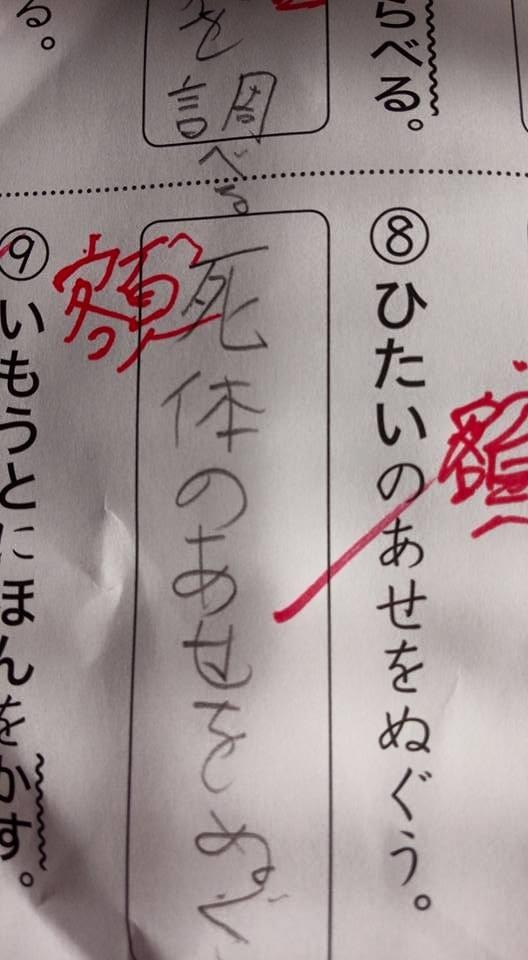 らべる。
を調べる。
る。
⑧ひたいのあせをぬぐう。
死体のあせをぬぐ
額
⑨いもうとにほんをかす。